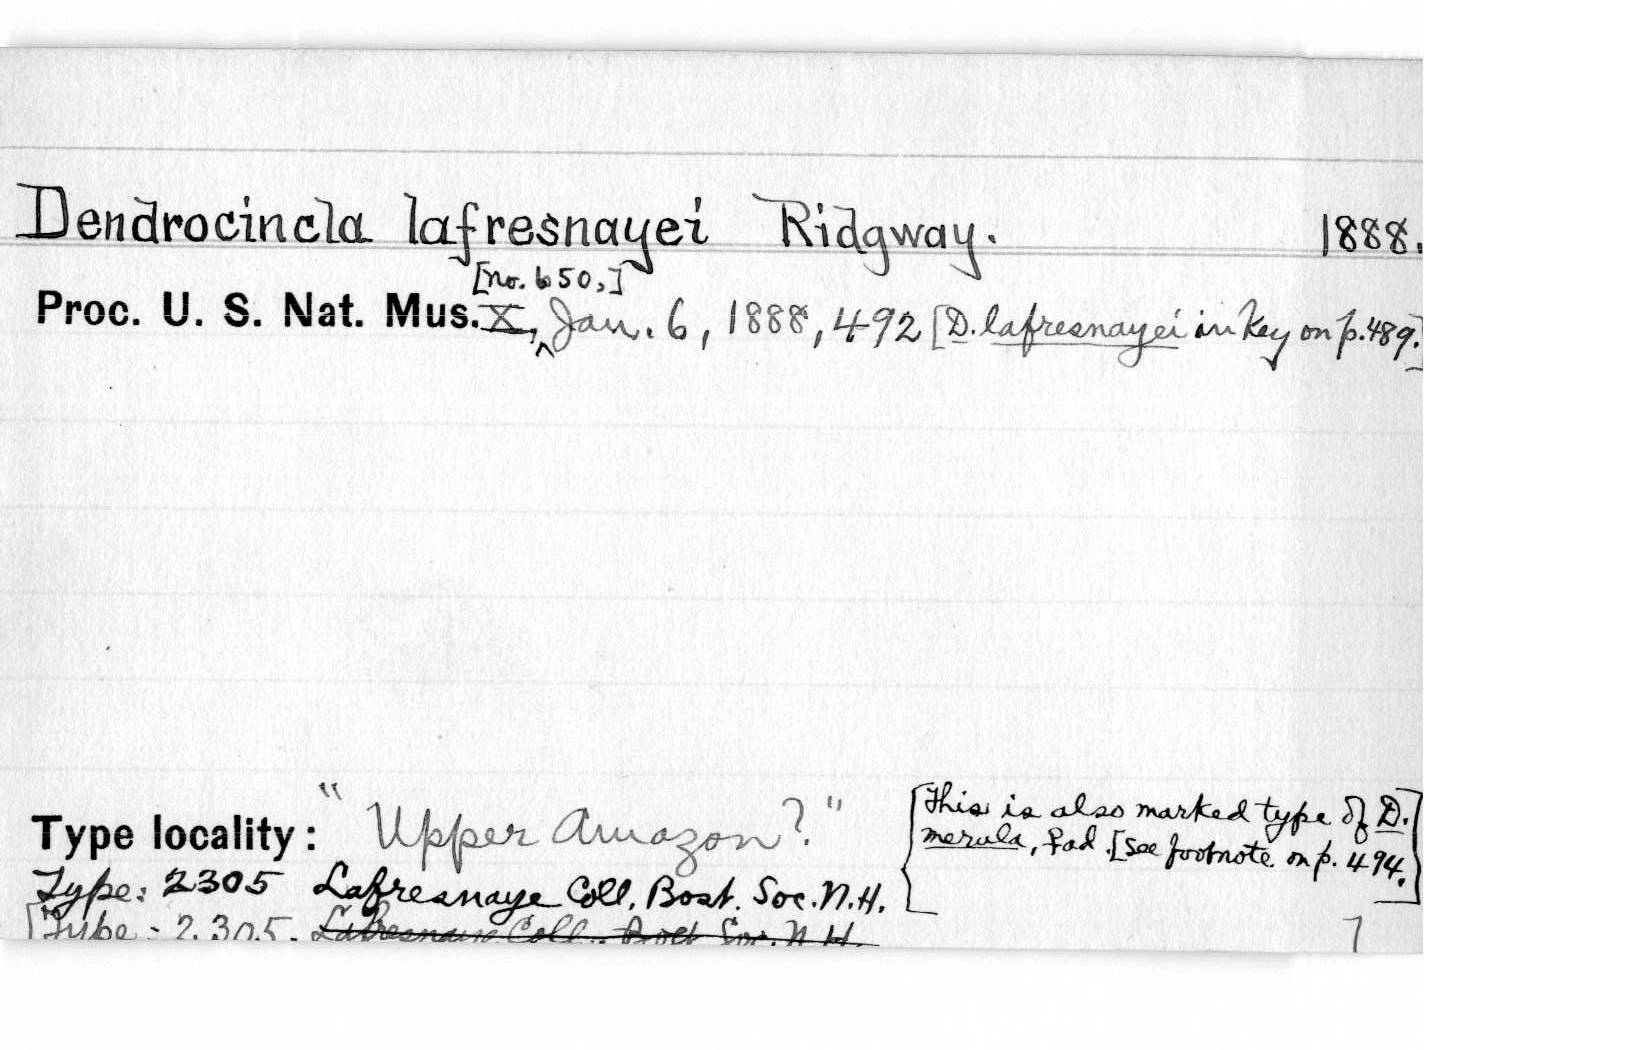 Dendrocincla lafresnayei Ridgway. 1888.
[no. 650,]
Proc. U. S. Nat. Mus. X, Jan. 6, 1888, 492 [D. lafresnayei in key on p. 489.]
Type locality: "Upper Amazon?"
[This is also marked type of D.
merula, Lad. [See footnote on p. 494.]
Type: 2305 Lafresnaye Coll. Bost. Soc. N.H.
[Type: 2305. Lafresnaye Coll. Bost Soc. N. H.
7